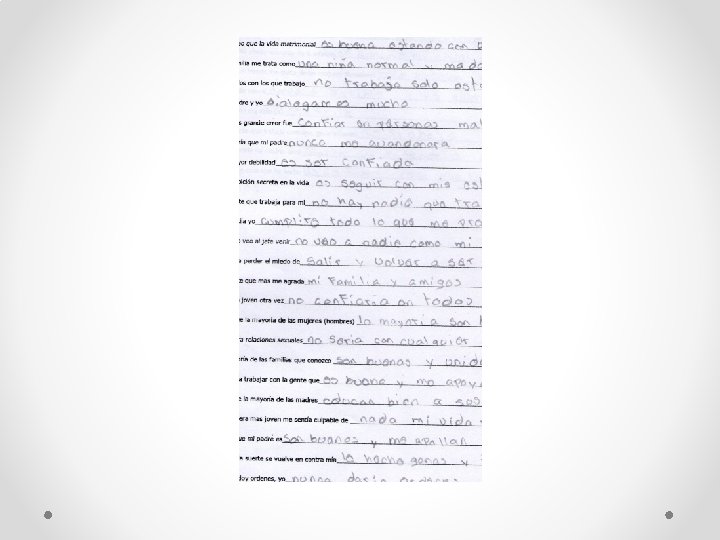 que la vida matrimonial es buena estando con
me trata como una niña normal y
con los que trabajo no trabajo solo
y yo Dialogamos mucho
grande error fue confiar en personas
que mi padre nunca me avandonara
debilidad es ser confiada
secreta en la vida es seguir con mis
que trabaja para mi no hay nadie que
yo cumplire todo lo que me
veo al jefe venir no veo a nadie como mi
perder el miedo de salir y volver a ser
que mas me agrada mi familia y amigos
joven otra vez no confiaria en todos
la mayoria de las mujeres (hombres) la mayoria son
relaciones sexuales no seria con cualquier
de las familias que conozco son buenas y
trabajar con la gente que es buena y me
la mayoria de las madres educan bien a sos
mas joven me sentía culpable de nada mi vida
mi padre es son buenos y me apollan
suerte se vuelve en contra mia le hecho ganas y
ordenes, yo nunca daria